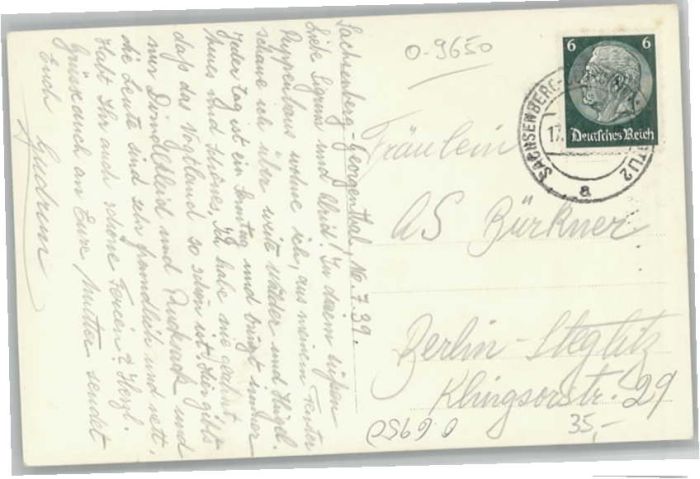 Sachsenberg-Georgenthal, 16.7.39.
Liebe Sigrun und Christ! In diesem süßen
Puppenhaus wohne ich, aus meinem Fenster
schaue ich über weite Wälder und Hügel.
Jeder Tag ist ein Sonntag und bringt immer
neues und schönes. Ich habe nie geahnt
daß das Vogtland so schön ist. Hier gibts
nur Dirndlkleid und Rucksack und
die Leute sind sehr freundlich und nett.
Habt Ihr auch schöne Ferien? Herzl.
Grüße auch an Eure Mutter sendet
Euch Gudrun
O-9650
6 6
Deutsches Reich
SACHSENBERG-
17.
a
Fräulein
AS Bürkner
Berlin-Steglitz
Klingsorstr. 29
35,-